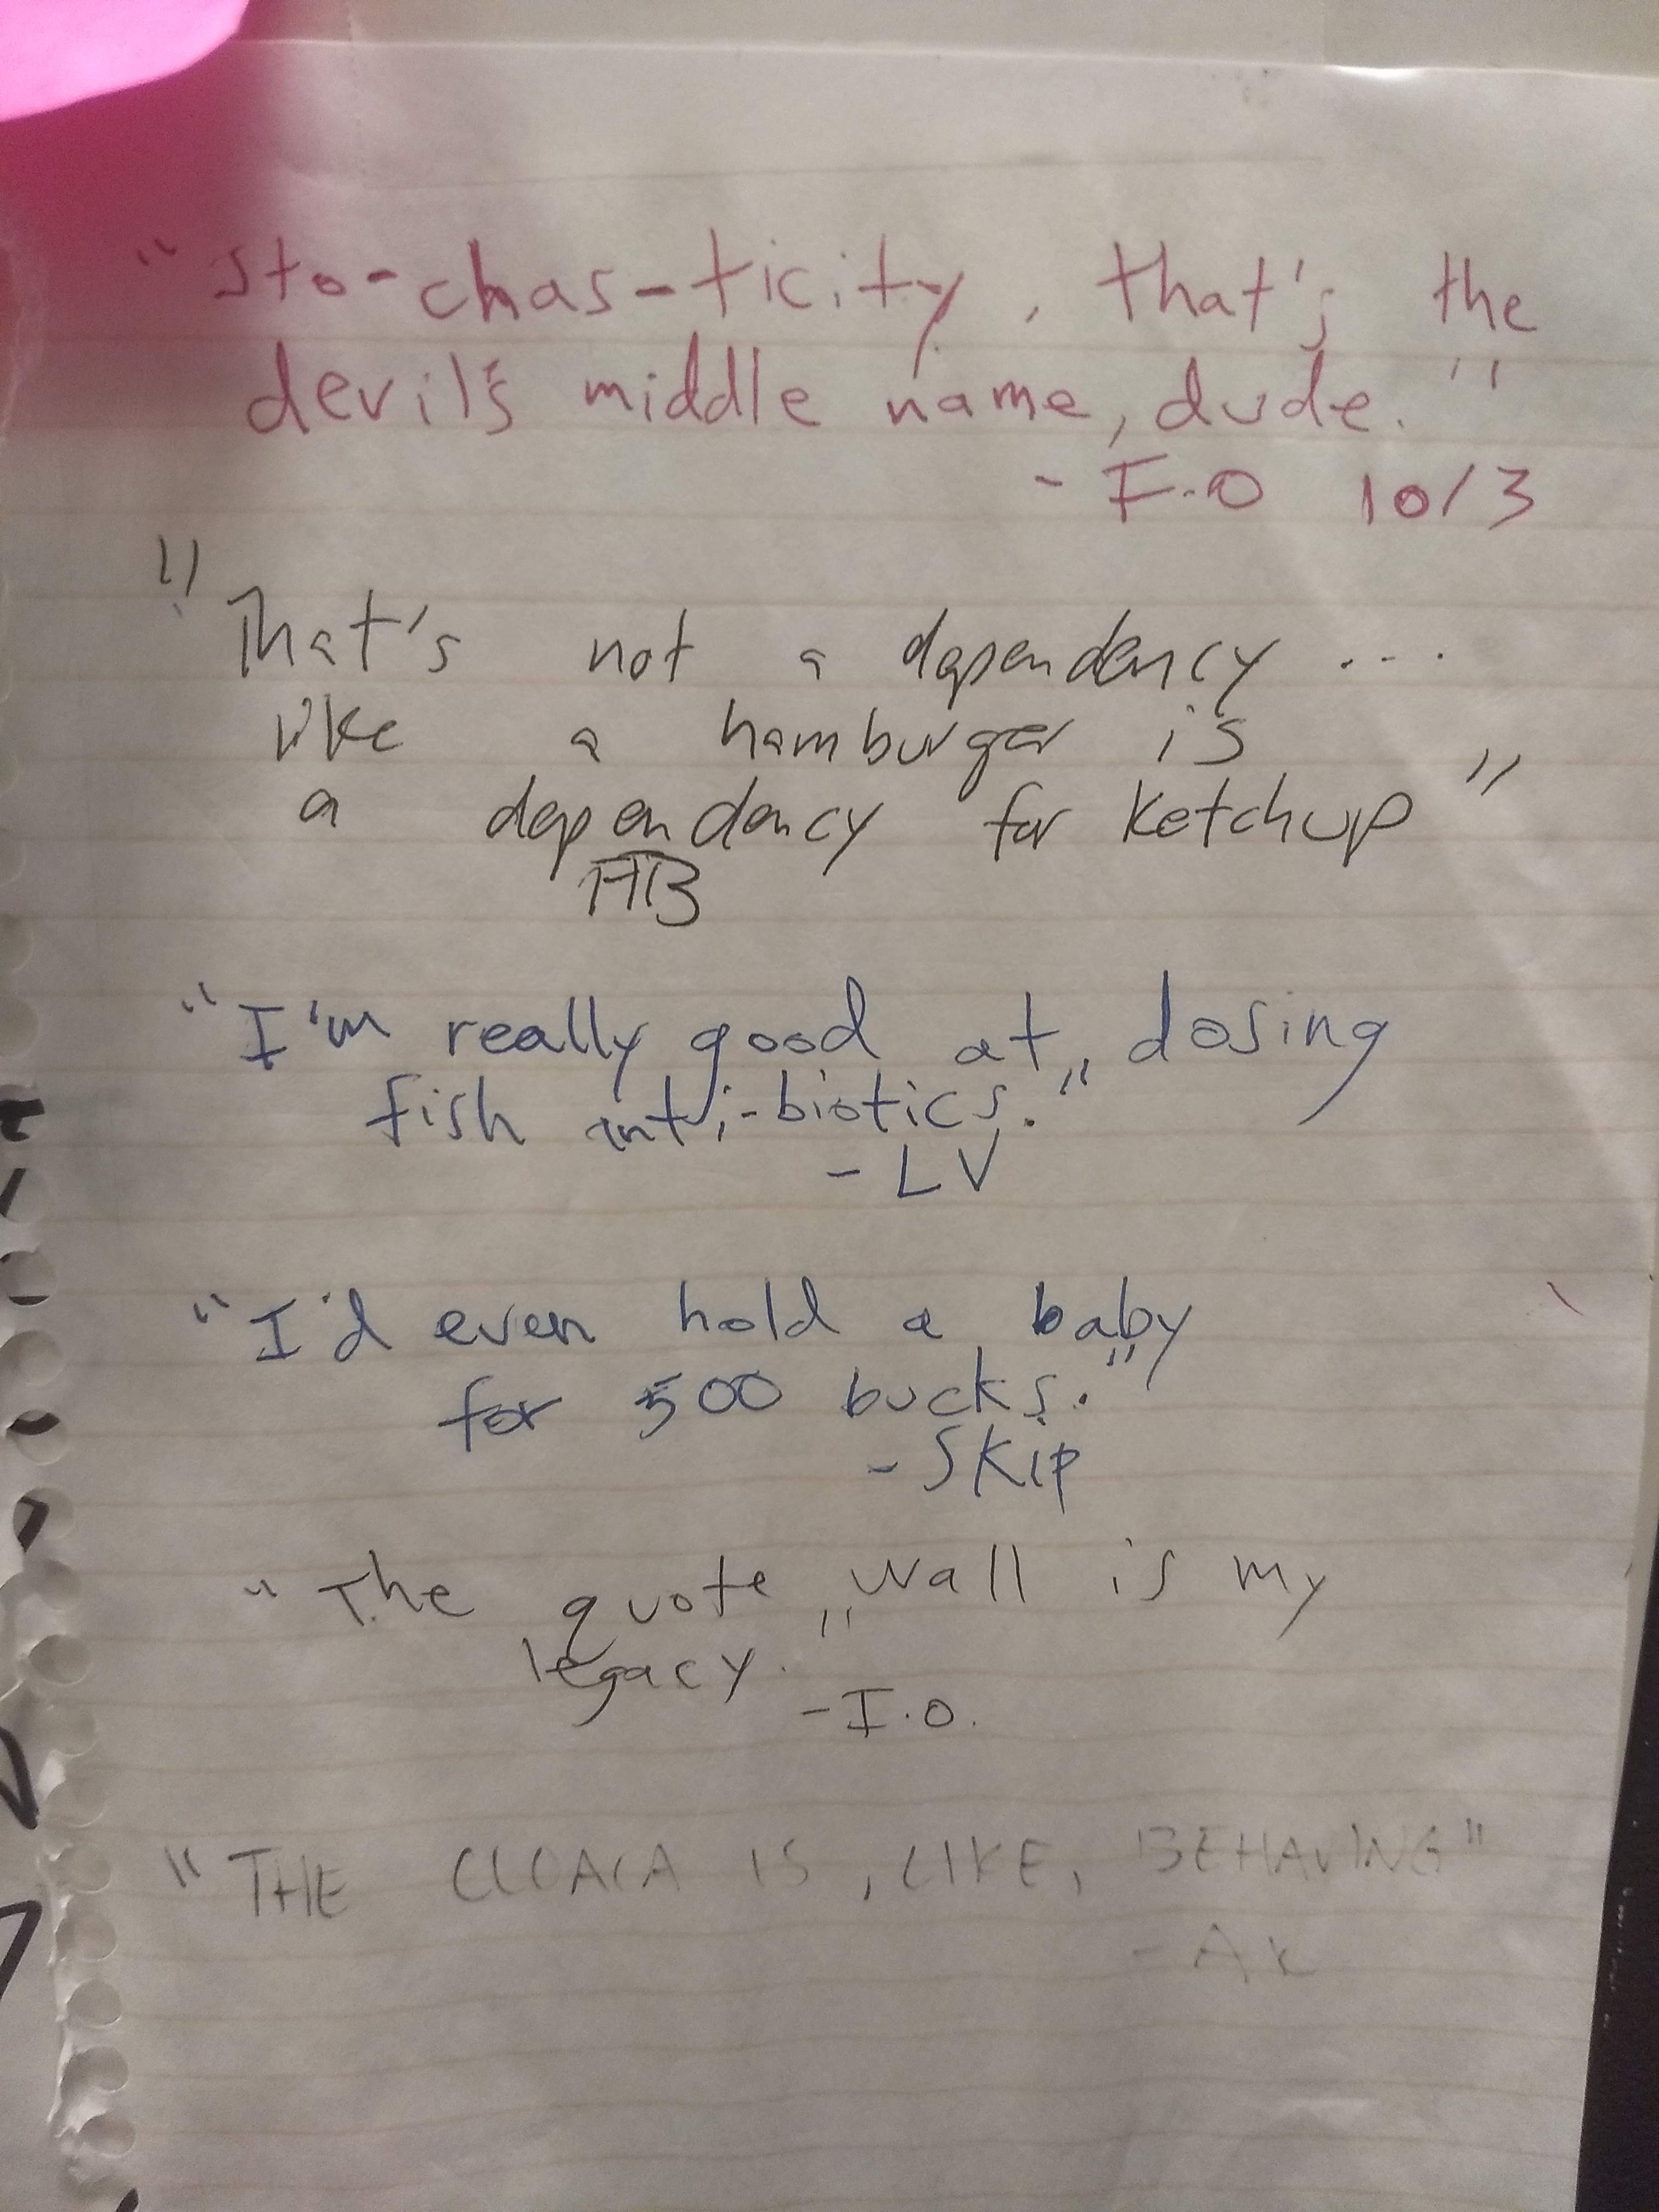 "sto-chas-ticity, that's the
devil's middle name, dude."
- I.O 10/3
"That's not a dependency...
like a hamburger is
a dependency for ketchup"
HB
"I'm really good at dosing
fish anti-biotics."
- LV
"I'd even hold a baby
for 500 bucks."
- SKIP
"The quote wall is my
legacy."
- I.O.
"THE CLOACA IS, LIKE, BEHAVING"
- AK